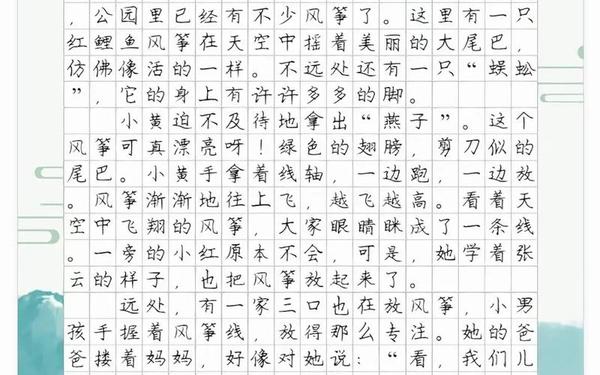 ，公园里已经有不少风筝了。这里有一只
红鲤鱼风筝在天空中摇着美丽的大尾巴，
仿佛像活的一样。不远处还有一只“蜈蚣
”，它的身上有许许多多的脚。
小黄迫不及待地拿出“燕子”。这个
风筝可真漂亮呀！绿色的翅膀，剪刀似的
尾巴。小黄手拿着线轴，一边跑，一边放
。风筝渐渐地往上飞，越飞越高。看着天
空中飞翔的风筝，大家眼睛眯成了一条线
。一旁的小红原本不会，可是，她学着张
云的样子，也把风筝放起来了。
远处，有一家三口也在放风筝，小男
孩手握着风筝线，放得那么专注。她的爸
爸搂着妈妈，好像对她说：“看，我们儿